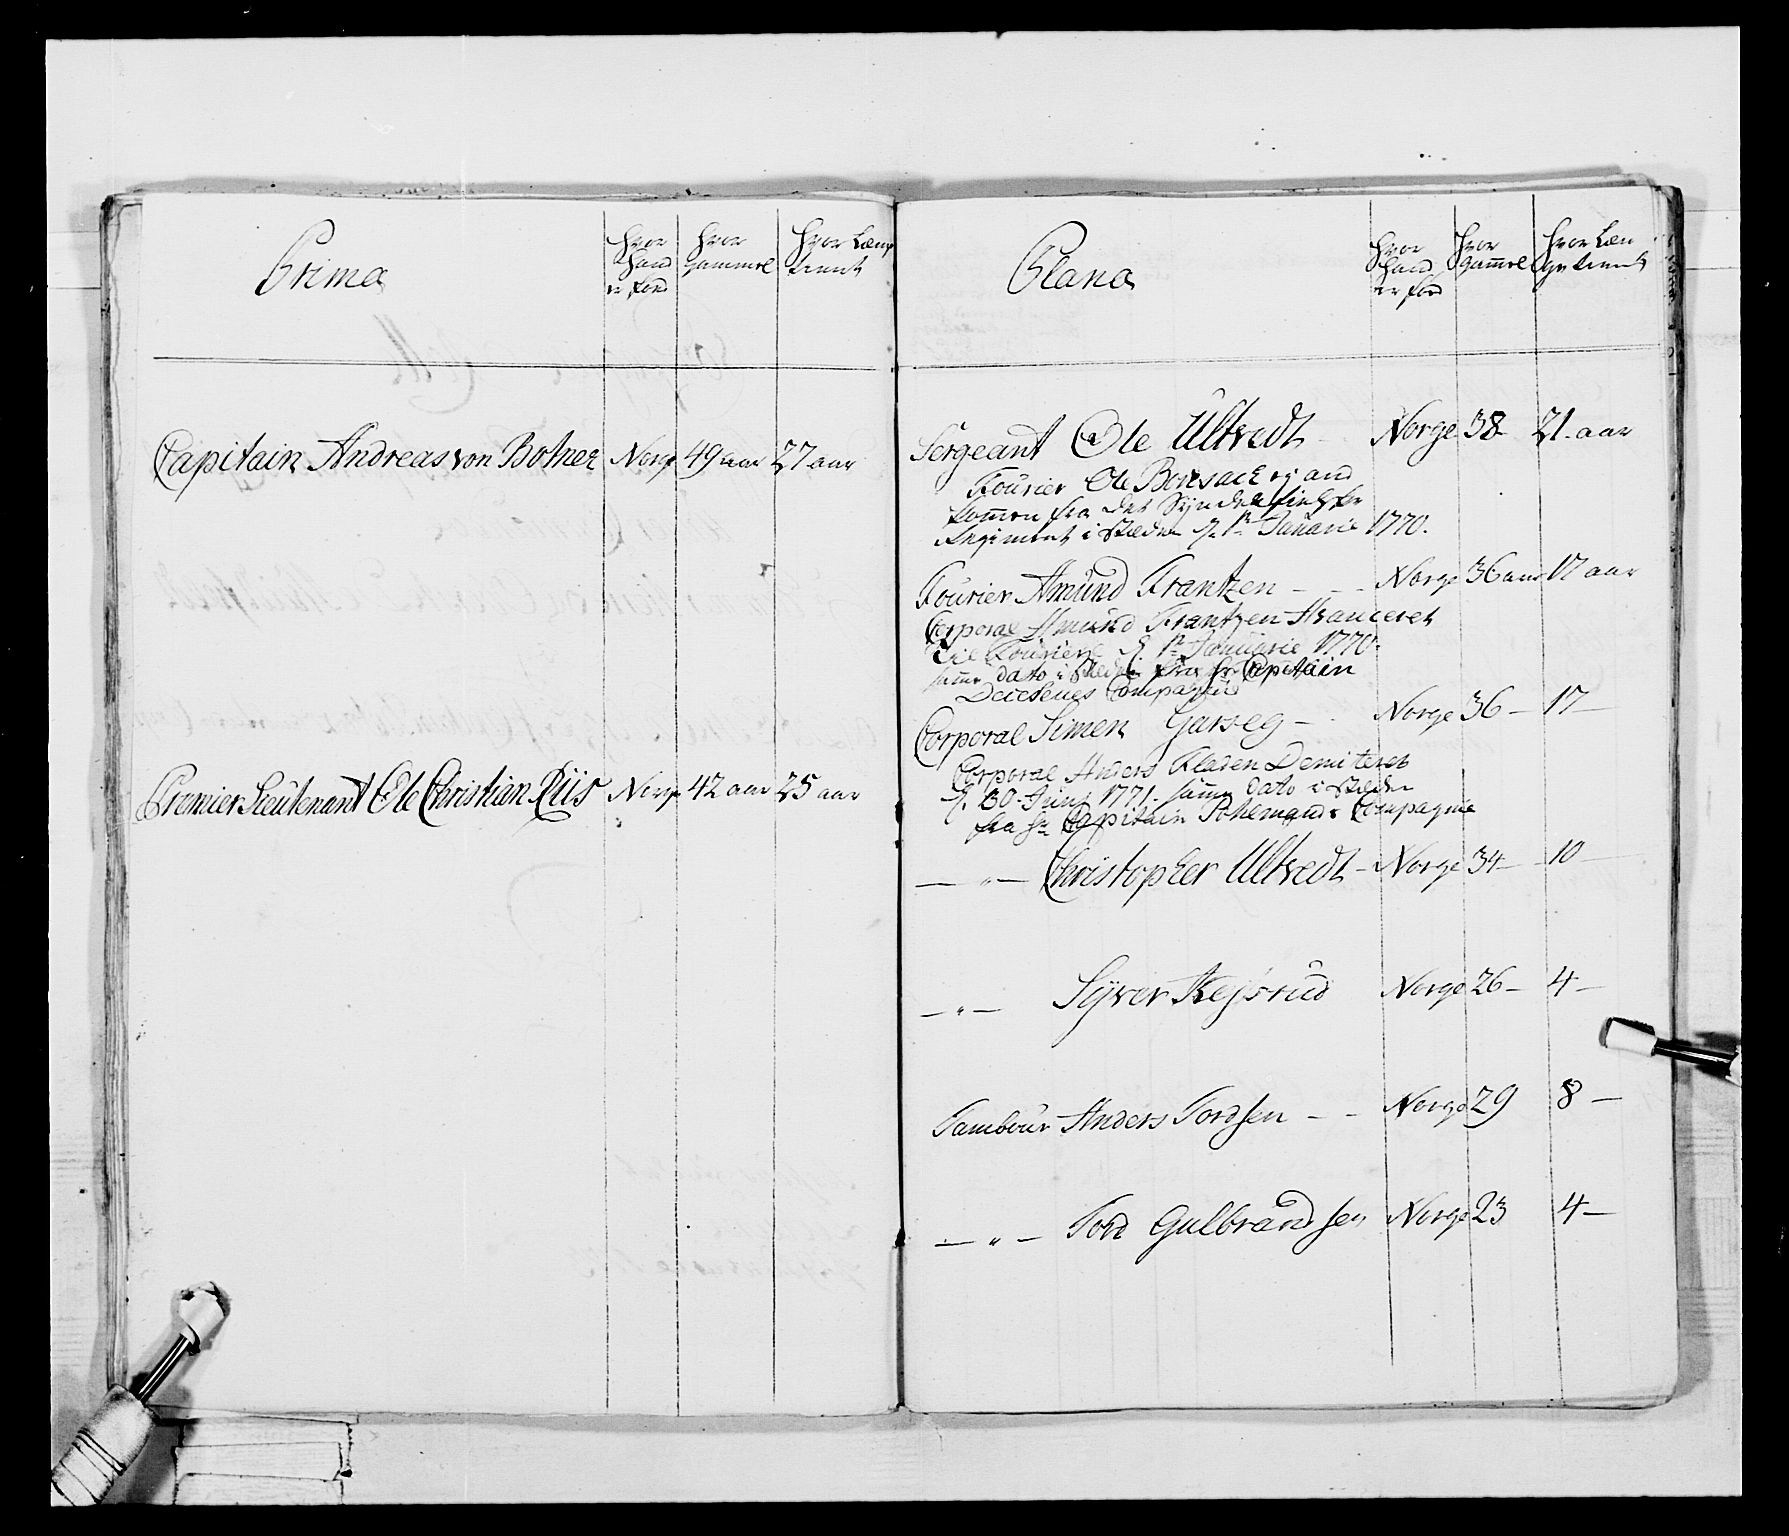 Prima
Hvor
Hand
er fød
Hvor
Gammel
Hvor Læng
tient
Capitain Andreas von Botner Norge 49 aar 27 aar
Premier Lieutenant Ole Christian Riis Norge 42 aar 25 aar
Plana
Hvor
Hand
er fød
Hvor
Gam̄el
Hvor Læn
ge tient
Sergeant Ole Ultvedt Norge 38 21 aar
Fourier Ole Bonsach
kom̄en fra det Syndenfieldske
Regiment i stæden d. 1st Januarii 1770.
Fourier Amund Frantzen - - - Norge 36 aar 17 aar
Corporal Amund Frantzen Avanceret
til Fourier d. 1st Januarie 1770.
sam̄e dato i stæden fra Hr Capitain
Compagnie
Corporal Simen Garseg - Norge 36 - 17 -
Corporal Anders Kladen Demiteret
d. 30 Junj 1771. sam̄e dato i stæden
fra Hr Capitain Compagnie
— " — Christopher Ultvedt - Norge 34 - 10 -
— " — Syver Kejsrud Norge 26 - 4 -
Tambour Anders Tordsen - - Norge 29 8 -
— " — Tord Gulbrandsen Norge 23 4 -